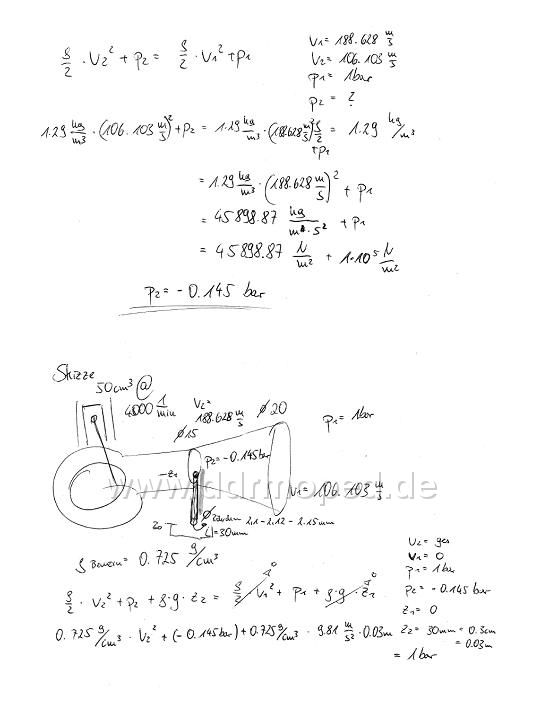 ρ/2 · v₂² + p₂ = ρ/2 · v₁² + p₁
v₁ = 188.628 m/s
v₂ = 106.103 m/s
p₁ = 1bar
p₂ = ?
1.29 kg/m³ · (106.103 m/s)² + p₂ = 1.29 kg/m³ · (188.628 m/s)² + p₁
ρ/2 = 1.29 kg/m³
= 1.29 kg/m³ · (188.628 m/s)² + p₁
= 45898.87 kg/m·s² + p₁
= 45898.87 N/m² + 1·10⁵ N/m²
p₂ = -0.145 bar
Skizze
50cm³ @
4000 1/min
v₂ = 188.628 m/s
ø20
ø15
p₁ = 1bar
p₂ = -0.145bar
-z₁
v₁ = 106.103 m/s
www.ddrmoped.de
2.1-2.12-2.15mm
z₀
L=30mm
ρ Benzin = 0.725 g/cm³
v₂ = ges
v₁ = 0
p₁ = 1bar
p₂ = -0.145bar
z₁ = 0
z₂ = 30mm = 0.3cm
= 0.03m
ρ/2 · v₂² + p₂ + ρ·g·z₂ = ρ/2 v₁² + p₁ + ρ·g·z₁
0.725 g/cm³ · v₂² + (-0.145bar) + 0.725 g/cm³ · 9.81 m/s² · 0.03m
= 1bar